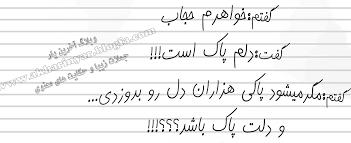 گفتم:خواهرم حجاب
گفت:دلم پاک است!!!
گفتم:مگرمیشود پاکی هزاران دل رو بدوزدی...
و دلت پاک باشد؟؟؟!!!
وبلاگ آخرین یار
جملات زیبا و حکایت های معنوی
www.akharinyar.blogfa.com